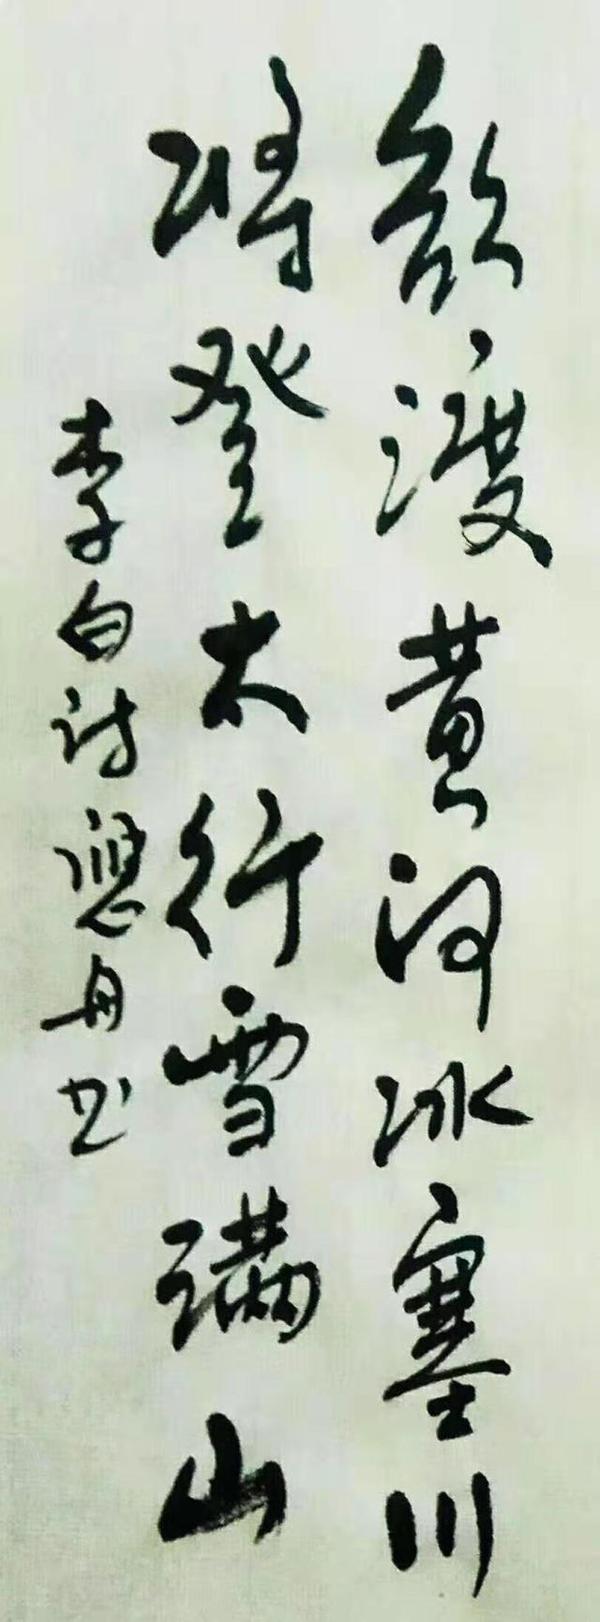 欲渡黄河冰塞川
将登太行雪满山
李白诗 舟书